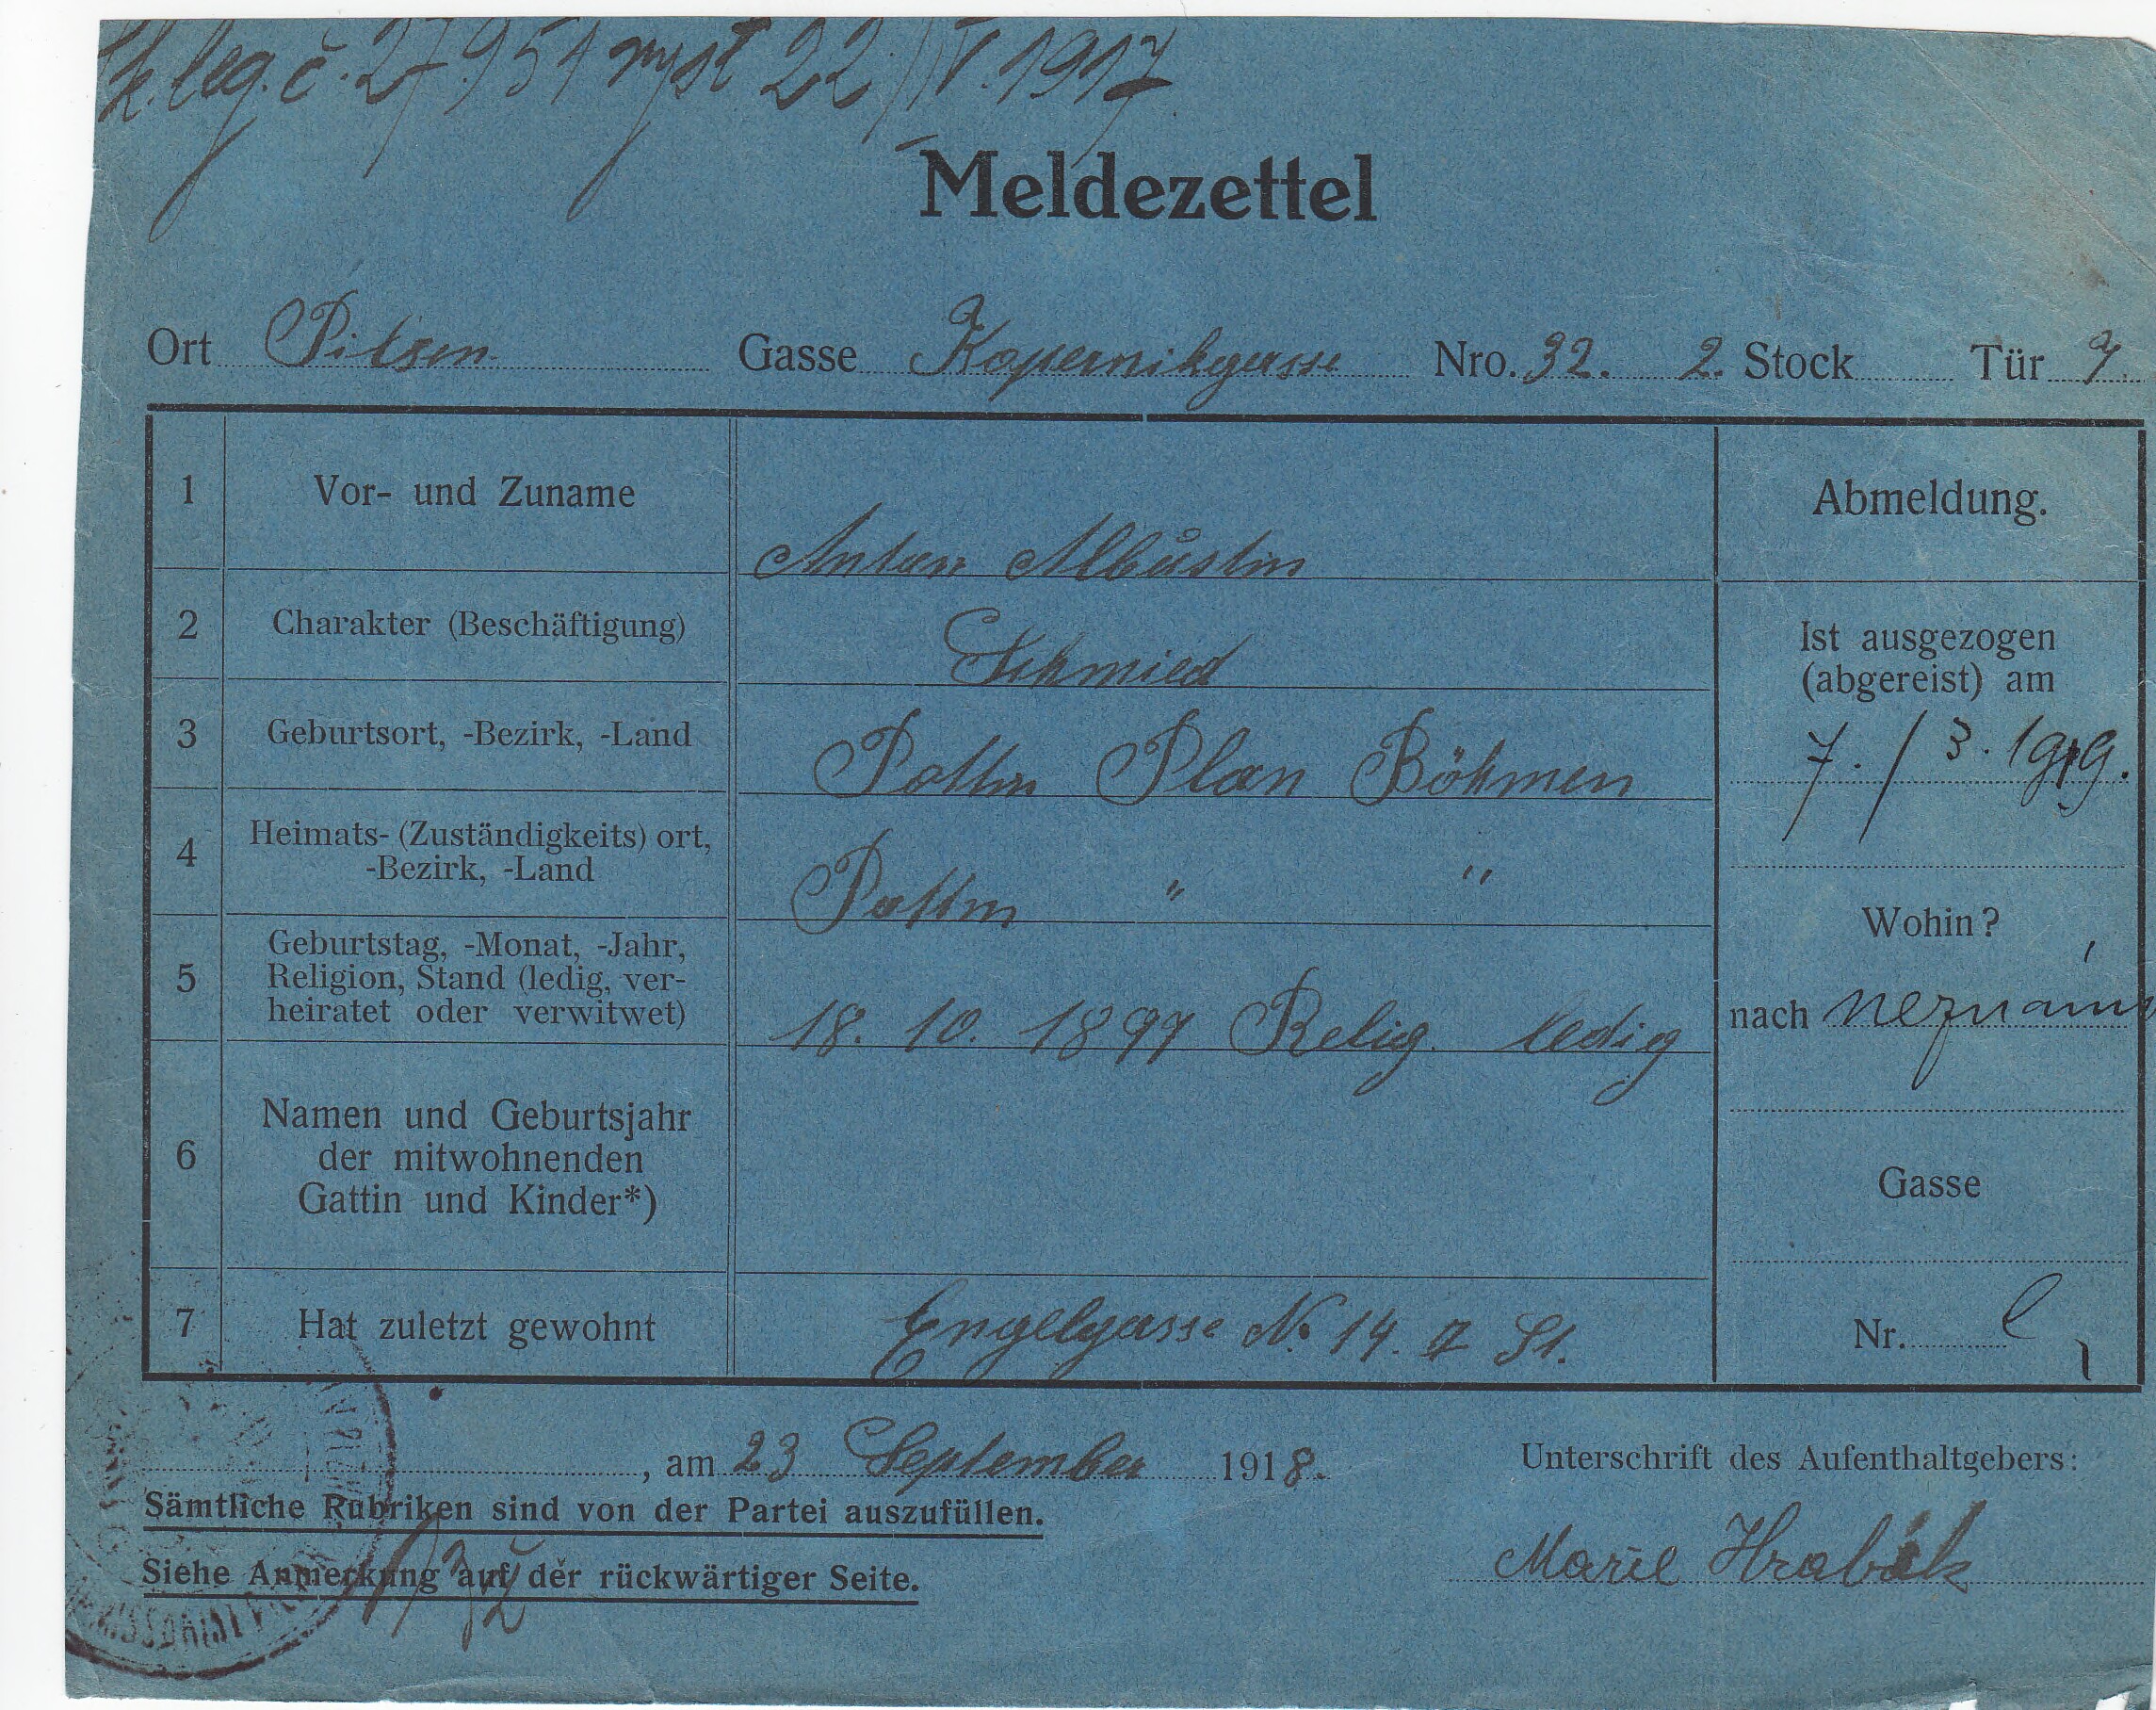 leg. č. 27.954 22/IV. 1917
Meldezettel
Ort Pilsen Gasse Kopernikgasse Nro. 32. 2. Stock Tür 7.
1 Vor- und Zuname Anton Albůstin
Abmeldung.
2 Charakter (Beschäftigung) Schmied
Ist ausgezogen
(abgereist) am
7./3. 1919.
3 Geburtsort, -Bezirk, -Land Plan Böhmen
4 Heimats- (Zuständigkeits) ort,
-Bezirk, -Land " "
Wohin?
nach neznámo
5 Geburtstag, -Monat, -Jahr,
Religion, Stand (ledig, ver-
heiratet oder verwitwet) 18. 10. 1897 Relig. ledig
6 Namen und Geburtsjahr
der mitwohnenden
Gattin und Kinder*)
Gasse
7 Hat zuletzt gewohnt Engelgasse No 14. St.
Nr.
, am 23 September 1918.
Unterschrift des Aufenthaltgebers:
Sämtliche Rubriken sind von der Partei auszufüllen.
Marie Hrabák
Siehe Anmerkung auf der rückwärtiger Seite.